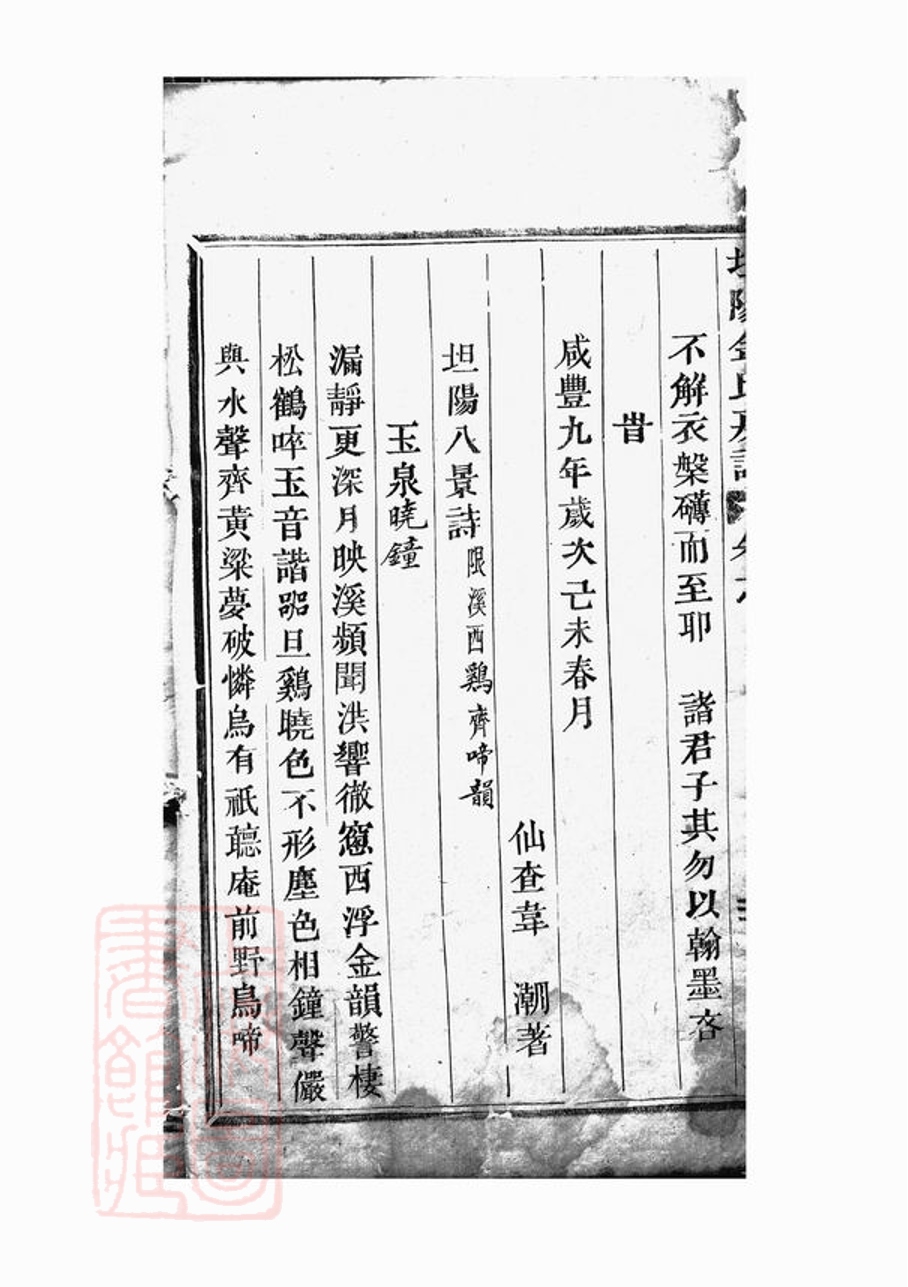 不解衣槃礴而至耶 諸君子其勿以翰墨吝
旹
咸豐九年歲次己未春月
仙查韋 潮著
坦陽八景詩限溪西鷄齊啼韻
玉泉曉鐘
漏靜更深月映溪頻聞洪響徹窻西浮金韻警棲
松鶴啐玉音諧喌旦鷄曉色不形塵色相鐘聲儼
與水聲齊黃粱夢破憐烏有祇聽庵前野鳥啼